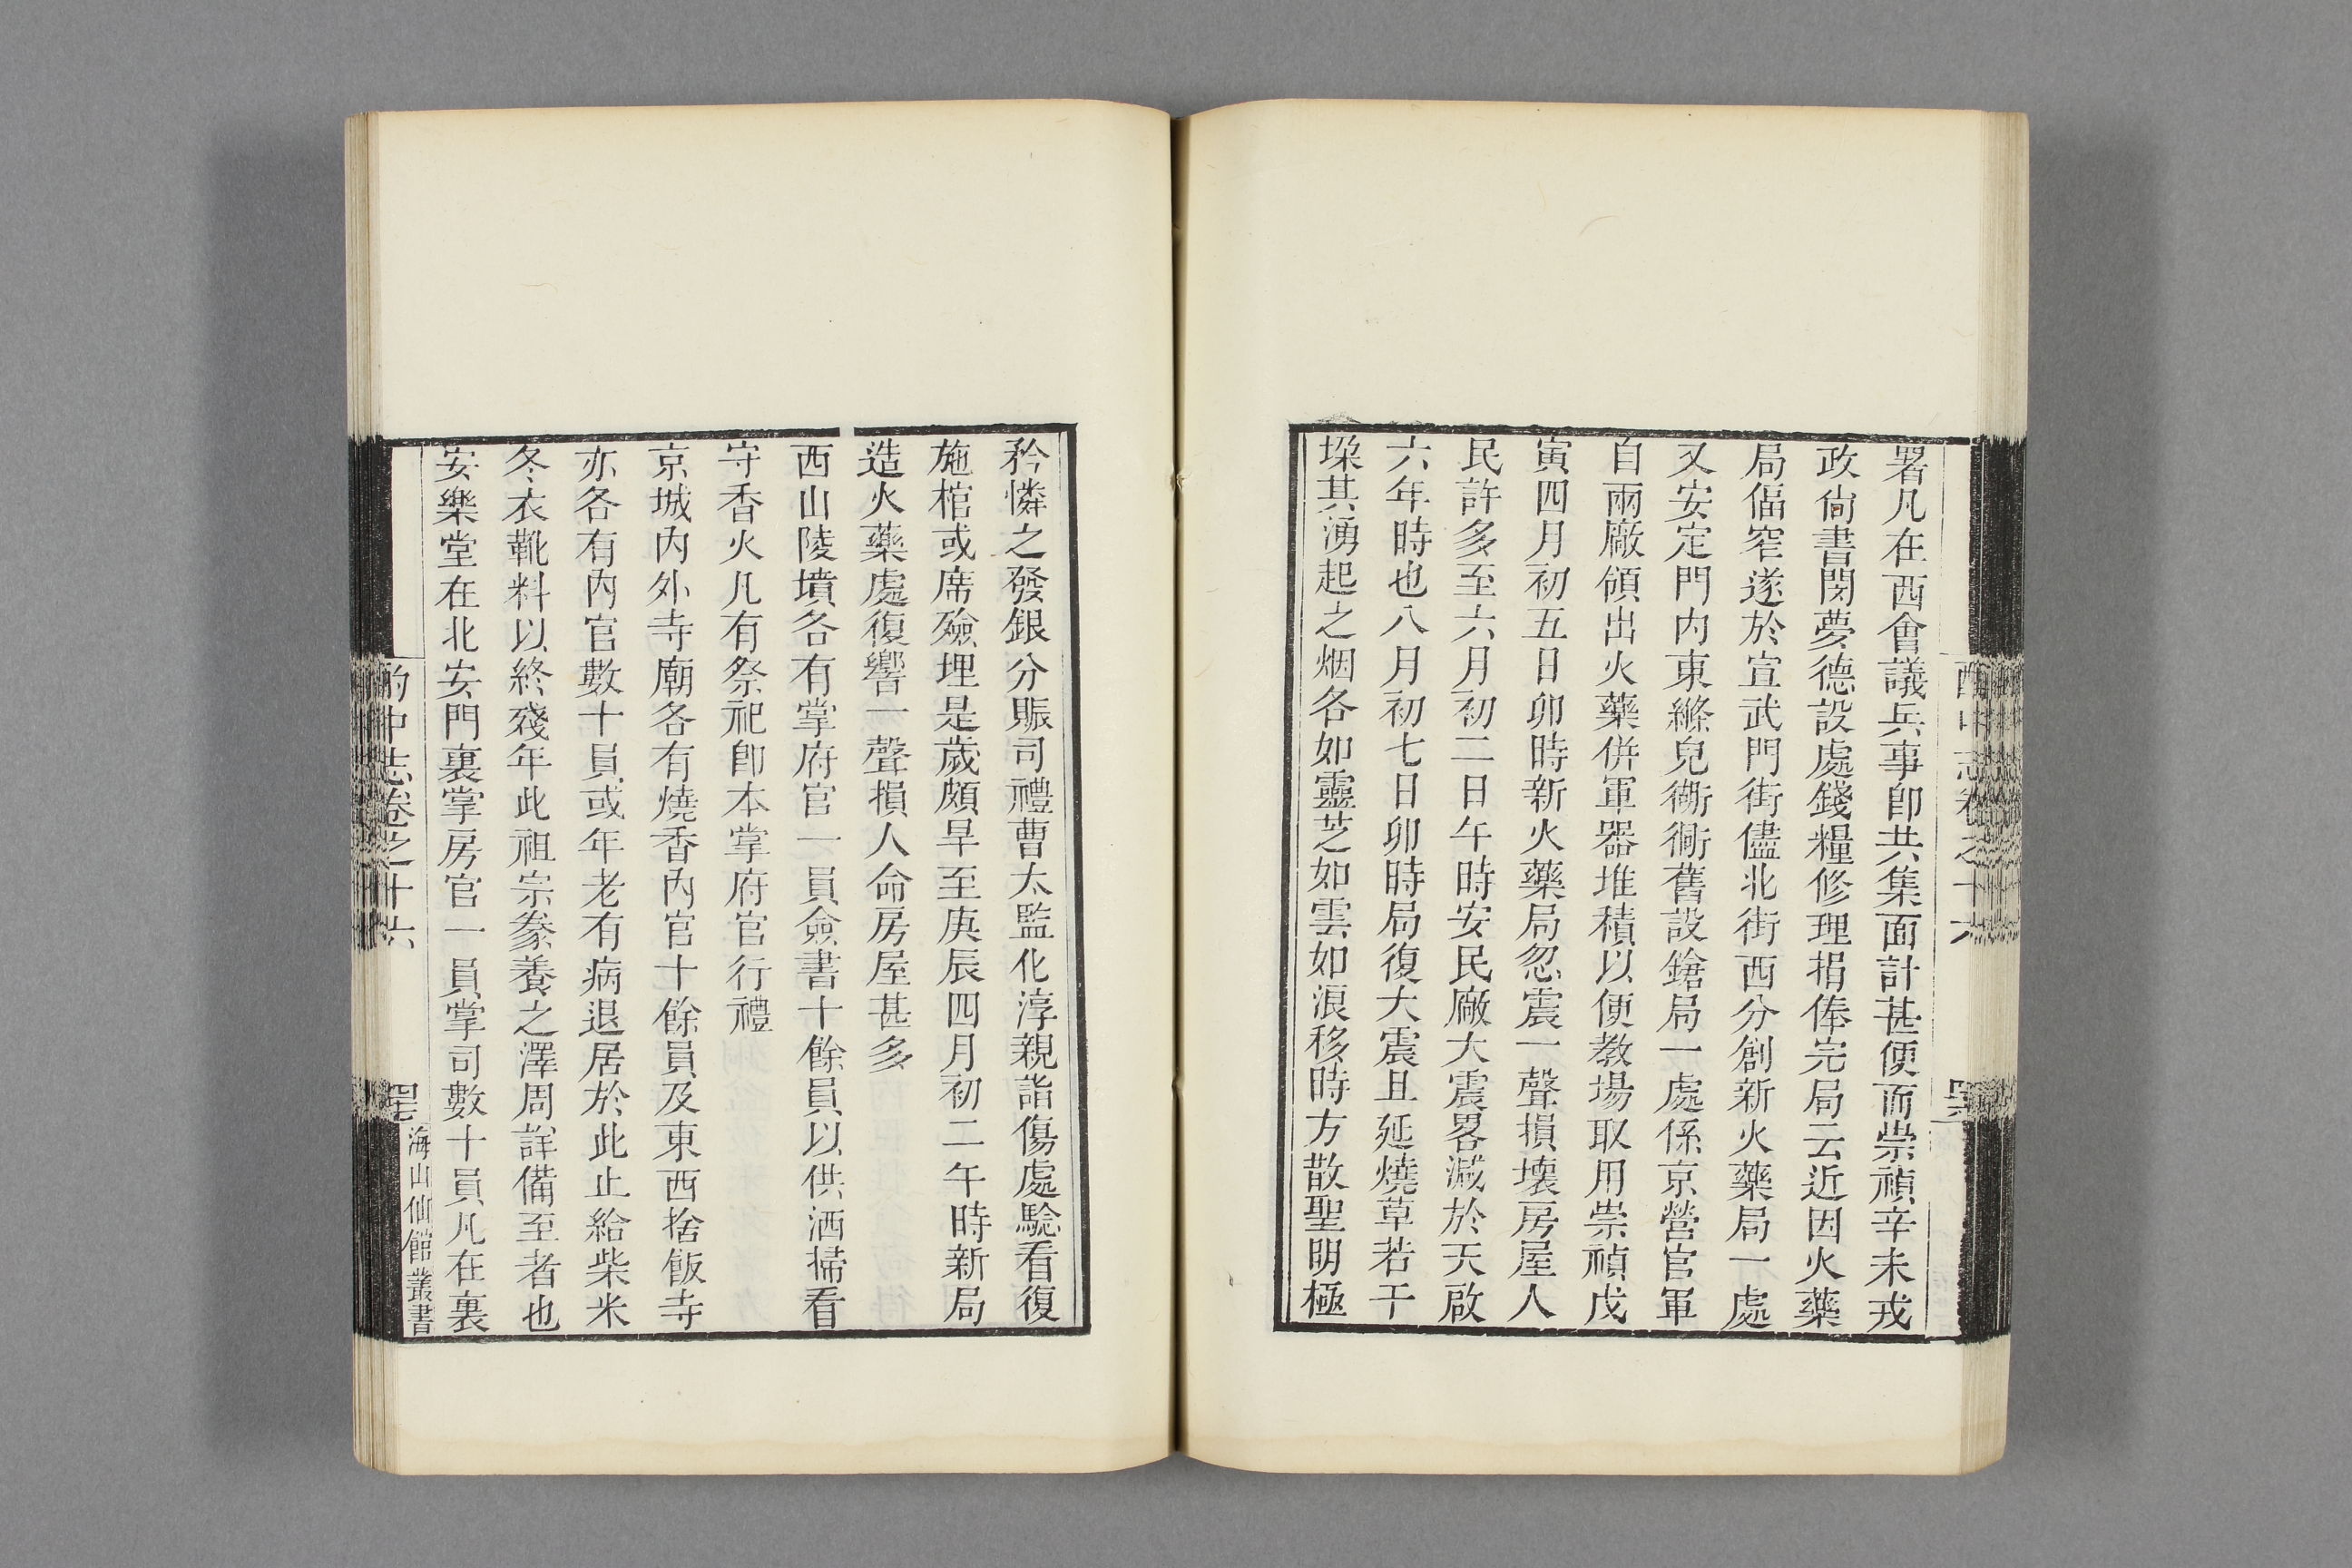 署凡在西會議兵事卽共集面計甚便而崇禎辛未戎
政尙書閔夢德設處錢糧修理捐俸完局云近因火藥
局偪窄遂於宣武門街儘北街西分創新火藥局一處
又安定門内東縧兒衚衕舊設鎗局一處係京營官軍
自兩廠領出火藥併軍器堆積以便教場取用崇禎戊
寅四月初五日卯時新火藥局忽震一聲損壞房屋人
民許多至六月初二日午時安民廠大震畧減於天啟
六年時也八月初七日卯時局復大震且延燒草若干
垜其湧起之烟各如靈芝如雲如浪移時方散聖明極
矜憐之發銀分賑司禮曹太監化淳親詣傷處驗看復
施棺或席殮埋是歲頗旱至庚辰四月初二午時新局
造火藥處復響一聲損人命房屋甚多
西山陵墳各有掌府官一員僉書十餘員以供洒掃看
守香火凡有祭祀卽本掌府官行禮
京城内外寺廟各有燒香内官十餘員及東西捨飯寺
亦各有内官數十員或年老有病退居於此止給柴米
冬衣靴料以終殘年此祖宗豢養之澤周詳備至者也
安樂堂在北安門裏掌房官一員掌司數十員凡在裏
酌中志卷之十六
海山仙館叢書